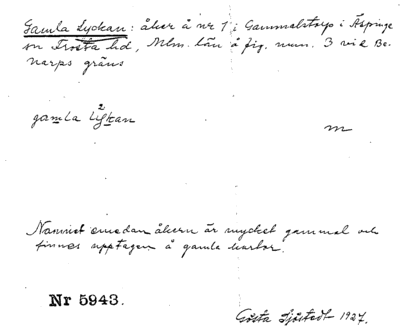 Gamla Lyckan: åker å nr 1 i Gammalstorp i Äspinge
sn Frosta hd, Mlm. län å fig. num. 3 vid Be-
narps gräns
gamla lyckan
2
m
Namnet emedan åkern är mycket gammal och
finnes upptagen å gamla kartor.
Nr 5943.
Gösta Sjöstedt 1927.